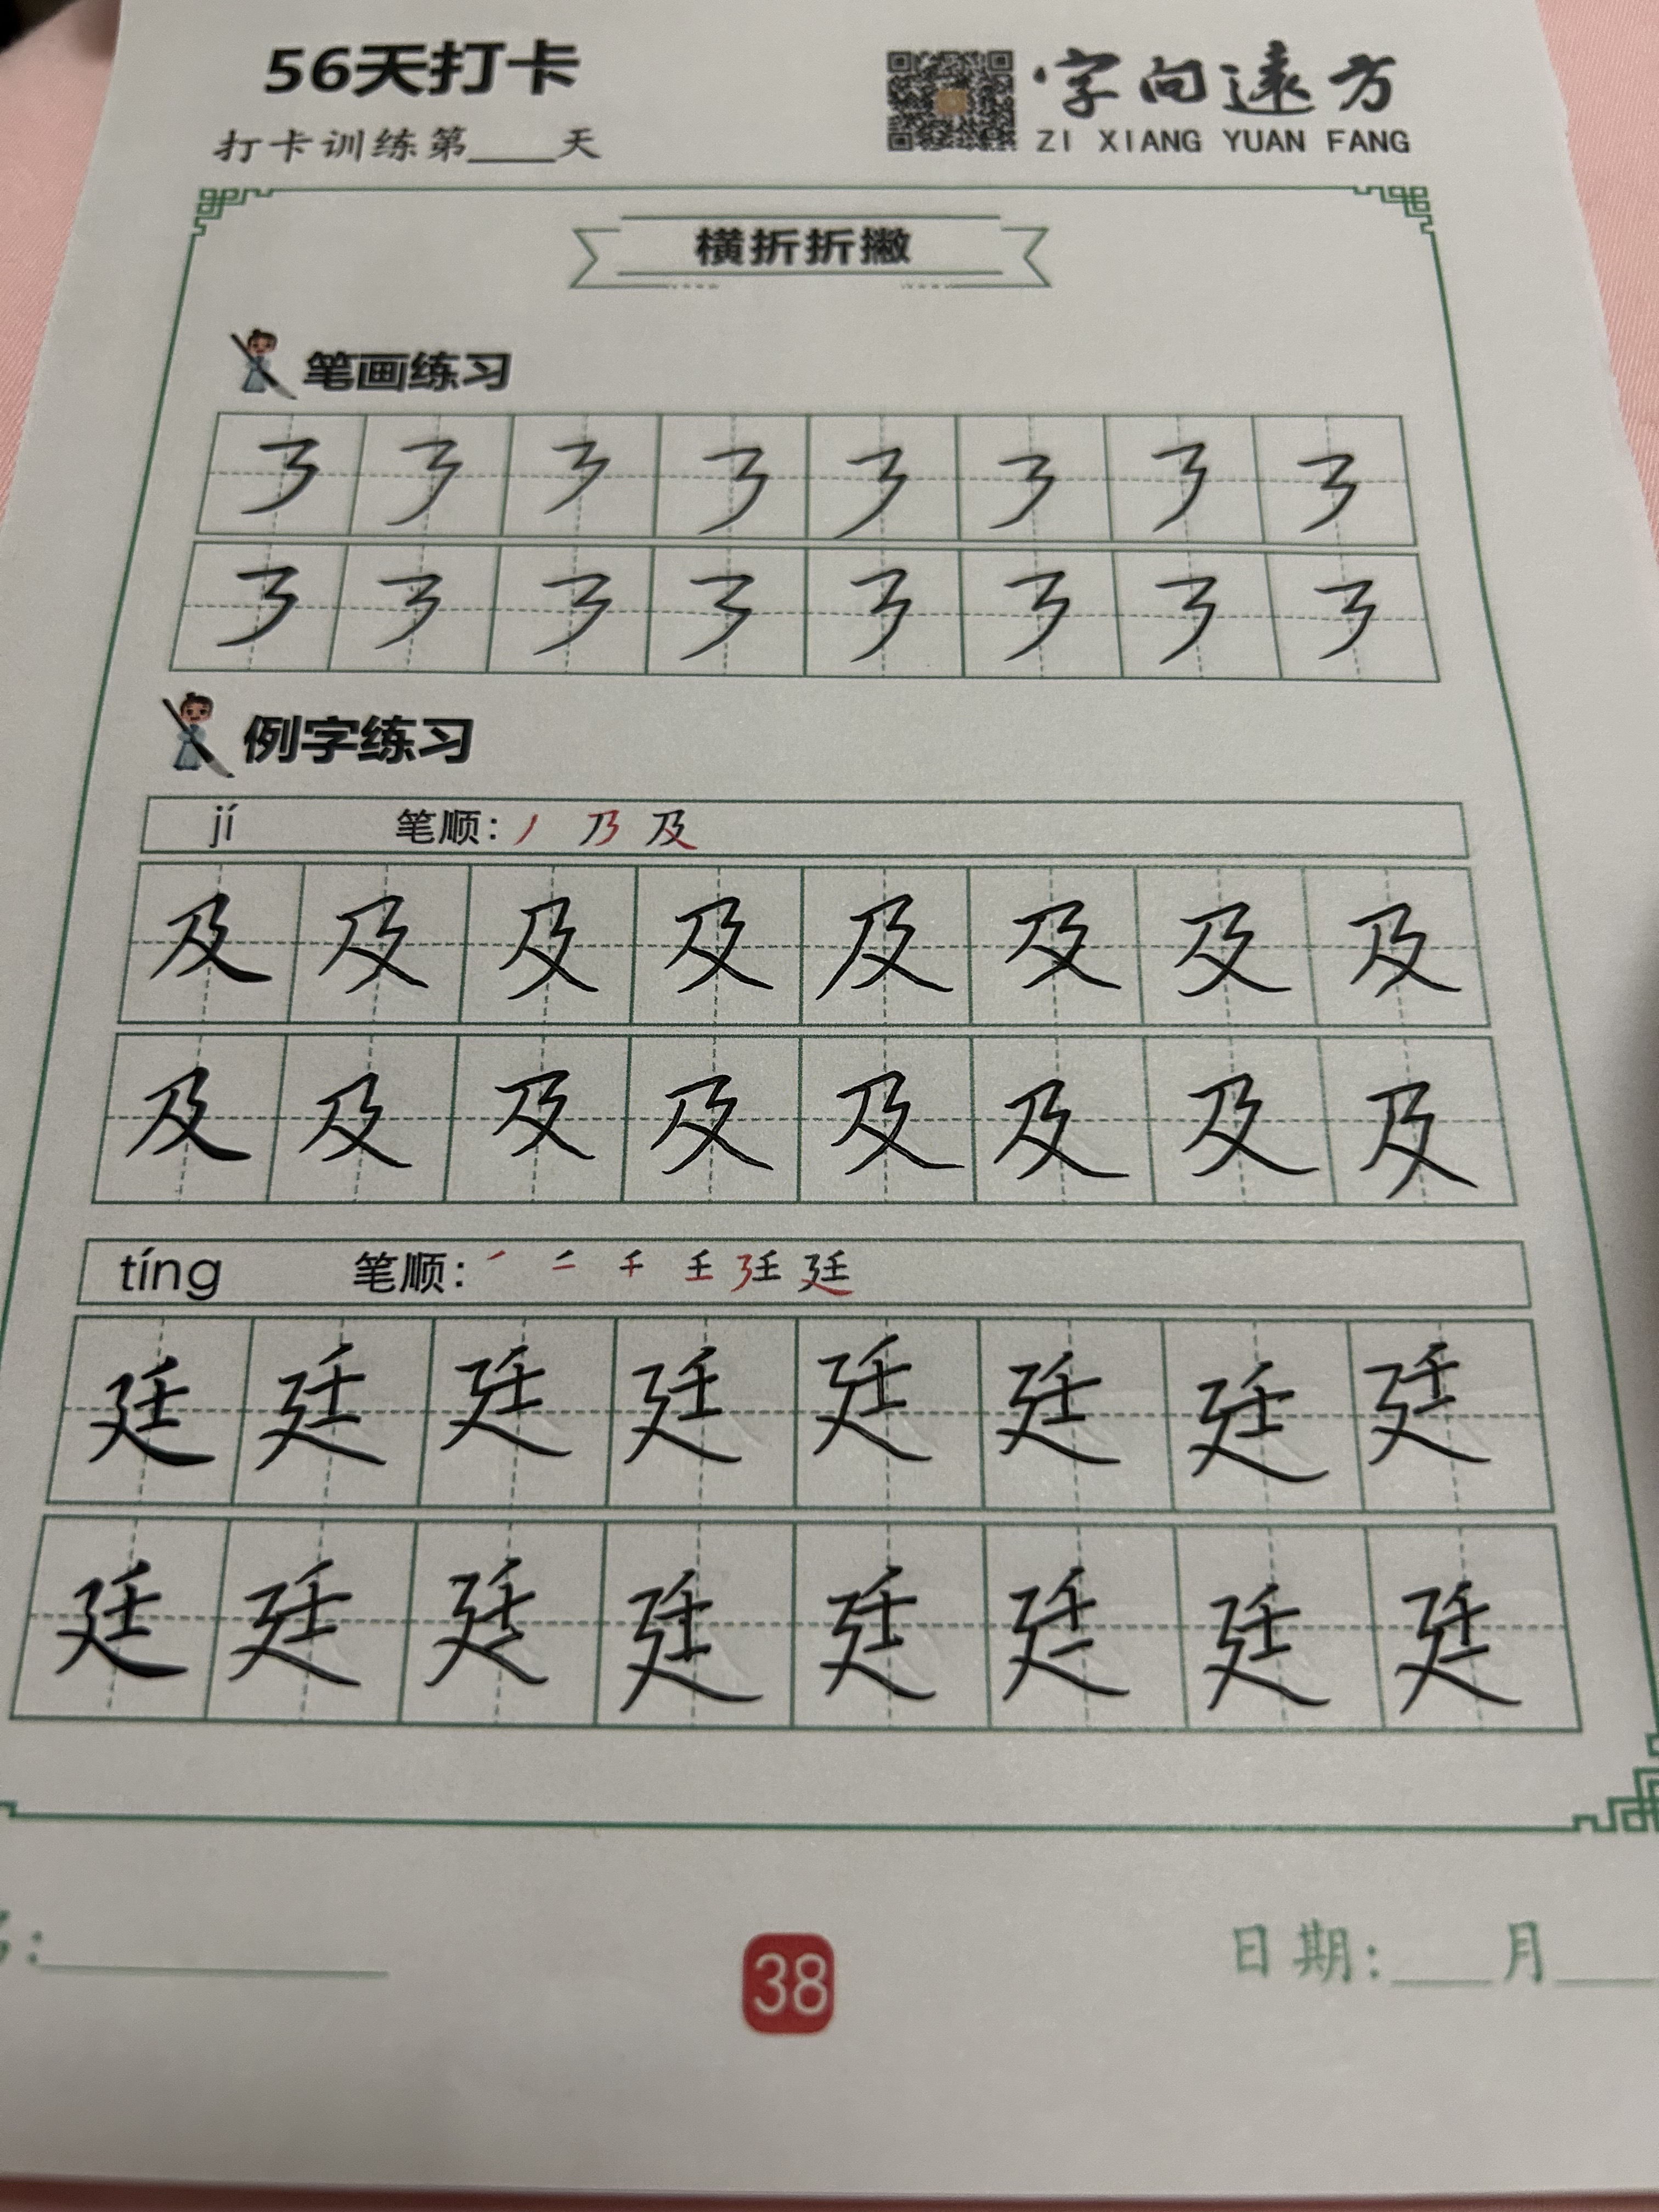 56天打卡
打卡训练第____天
字向远方
ZI XIANG YUAN FANG
横折折撇
笔画练习
㇋ ㇋ ㇋ ㇋ ㇋ ㇋ ㇋ ㇋
㇋ ㇋ ㇋ ㇋ ㇋ ㇋ ㇋ ㇋
例字练习
jí 笔顺：丿 乃 及
及 及 及 及 及 及 及 及
及 及 及 及 及 及 及 及
tíng 笔顺：㇒ 二 千 壬 廷 廷
廷 廷 廷 廷 廷 廷 廷 廷
廷 廷 廷 廷 廷 廷 廷 廷
38
日期:____月____